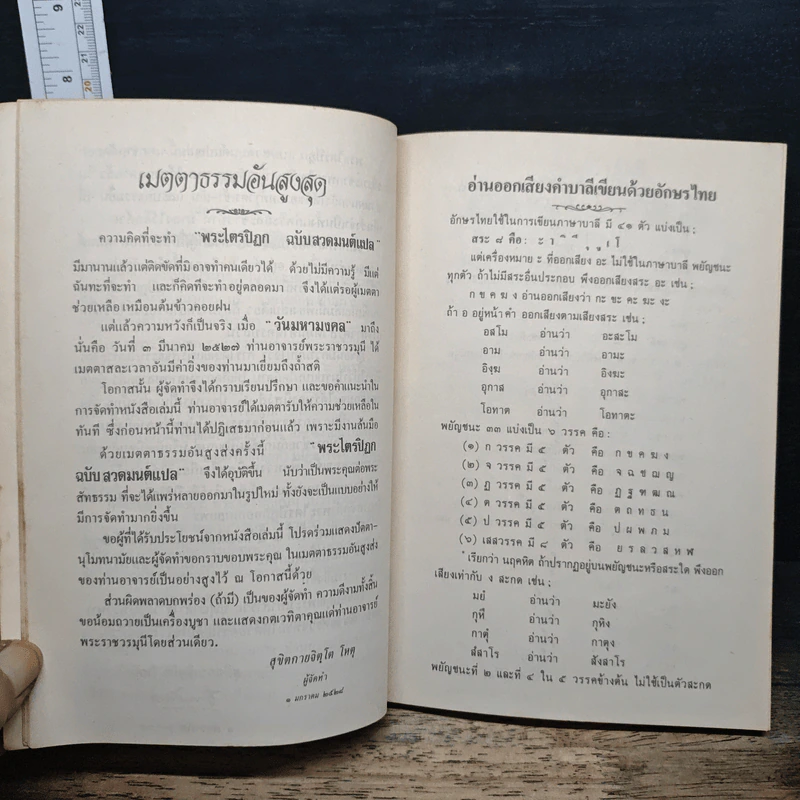 8
9
20
21
เมตตาธรรมอันสูงสุด
ความคิดที่จะทำ "พระไตรปิฎก ฉบับสวดมนต์แปล"
มีมานานแล้วแต่ติดขัดที่มิอาจทำคนเดียวได้ ด้วยไม่มีความรู้ มีแต่
ฉันทะที่จะทำ และก็คิดที่จะทำอยู่ตลอดมา จึงได้แต่รอผู้เมตตา
ช่วยเหลือ เหมือนต้นข้าวคอยฝน
แต่แล้วความหวังก็เป็นจริง เมื่อ "วันมหามงคล" มาถึง
นั่นคือ วันที่ ๓ มีนาคม ๒๕๒๗ ท่านอาจารย์พระราชวรมุนี ได้
เมตตาสละเวลาอันมีค่ายิ่งของท่านมาเยี่ยมถึงถ้ำสติ
โอกาสนั้น ผู้จัดทำจึงได้กราบเรียนปรึกษา และขอคำแนะนำใน
การจัดทำหนังสือเล่มนี้ ท่านอาจารย์ได้เมตตารับให้ความช่วยเหลือใน
ทันที ซึ่งก่อนหน้านี้ท่านได้ปฏิเสธมาก่อนแล้ว เพราะมีงานล้นมือ
ด้วยเมตตาธรรมอันสูงส่งครั้งนี้ "พระไตรปิฎก
ฉบับสวดมนต์แปล" จึงได้อุบัติขึ้น นับว่าเป็นพระคุณต่อพระ
สัทธรรม ที่จะได้แพร่หลายออกมาในรูปใหม่ ทั้งยังจะเป็นแบบอย่างให้
มีการจัดทำมากยิ่งขึ้น
ขอผู้ที่ได้รับประโยชน์จากหนังสือเล่มนี้ โปรดร่วมแสดงปัตตา-
นุโมทนามัยและผู้จัดทำขอกราบขอบพระคุณ ในเมตตาธรรมอันสูงส่ง
ของท่านอาจารย์เป็นอย่างสูงไว้ ณ โอกาสนี้ด้วย
ส่วนผิดพลาดบกพร่อง (ถ้ามี) เป็นของผู้จัดทำ ความดีงามทั้งสิ้น
ขอน้อมถวายเป็นเครื่องบูชา และแสดงกตเวทิตาคุณแด่ท่านอาจารย์
พระราชวรมุนีโดยส่วนเดียว.
สุขิตกายจิตฺโต โหตุ
ผู้จัดทำ
๑ มกราคม ๒๕๒๘
อ่านออกเสียงคำบาลีเขียนด้วยอักษรไทย
อักษรไทยใช้ในการเขียนภาษาบาลี มี ๔๑ ตัว แบ่งเป็น ;
สระ ๘ คือ : ะ า ิ ี ุ ู เ โ
แต่เครื่องหมาย ะ ที่ออกเสียง อะ ไม่ใช้ในภาษาบาลี พยัญชนะ
ทุกตัว ถ้าไม่มีสระอื่นประกอบ พึงออกเสียงสระ อะ เช่น ;
ก ข ค ฆ ง อ่านออกเสียงว่า กะ ขะ คะ ฆะ งะ
ถ้า อ อยู่หน้าคำ ออกเสียงตามเสียงสระ เช่น ;
อสโม อ่านว่า อะสะโม
อาม อ่านว่า อามะ
อิงฺฆ อ่านว่า อิงฆะ
อุกาส อ่านว่า อุกาสะ
โอทาต อ่านว่า โอทาตะ
พยัญชนะ ๓๓ แบ่งเป็น ๖ วรรค คือ :
(๑) ก วรรค มี ๕ ตัว คือ ก ข ค ฆ ง
(๒) จ วรรค มี ๕ ตัว คือ จ ฉ ช ฌ ญ
(๓) ฏ วรรค มี ๕ ตัว คือ ฏ ฐ ฑ ฒ ณ
(๔) ต วรรค มี ๕ ตัว คือ ต ถ ท ธ น
(๕) ป วรรค มี ๕ ตัว คือ ป ผ พ ภ ม
(๖) เสสวรรค มี ๘ ตัว คือ ย ร ล ว ส ห ฬ
ํ เรียกว่า นฤคหิต ถ้าปรากฏอยู่บนพยัญชนะหรือสระใด พึงออก
เสียงเท่ากับ ง สะกด เช่น ;
มยํ อ่านว่า มะยัง
กุหึ อ่านว่า กุหิง
กาตุํ อ่านว่า กาตุง
สํสาโร อ่านว่า สังสาโร
พยัญชนะที่ ๒ และที่ ๔ ใน ๕ วรรคข้างต้น ไม่ใช้เป็นตัวสะกด